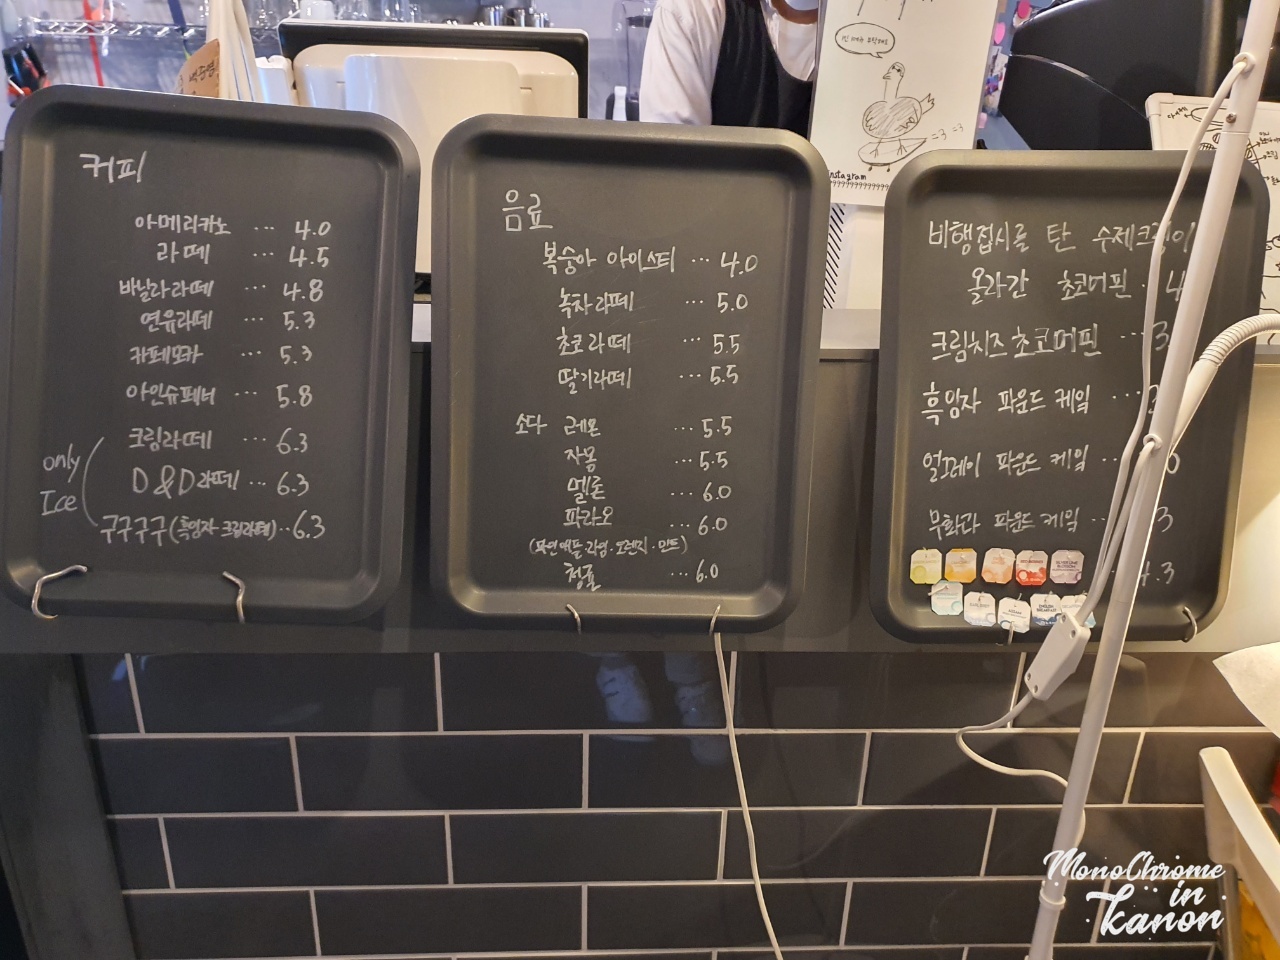 커피
아메리카노 ... 4.0
라떼 ... 4.5
바닐라라떼 ... 4.8
연유라떼 ... 5.3
카페모카 ... 5.3
아인슈페너 ... 5.8
크림라떼 ... 6.3
only Ice
D&D라떼 ... 6.3
구구구구(흑임자크림라떼)...6.3
음료
복숭아 아이스티 ... 4.0
녹차라떼 ... 5.0
초코라떼 ... 5.5
딸기라떼 ... 5.5
소다 레몬 ... 5.5
자몽 ... 5.5
멜론 ... 6.0
파라오 ... 6.0
(파인애플·라임·오렌지·민트)
청귤 ... 6.0
비행접시를 탄 수제크림이
올라간 초코머핀 ... 4
크림치즈초코머핀 ... 3
흑임자 파운드 케잌 ...
얼그레이 파운드 케잌 ...
무화과 파운드 케잌 ... 3
4.3
1인 1메뉴 부탁해요
instagram
MonoChrome
in
kanon